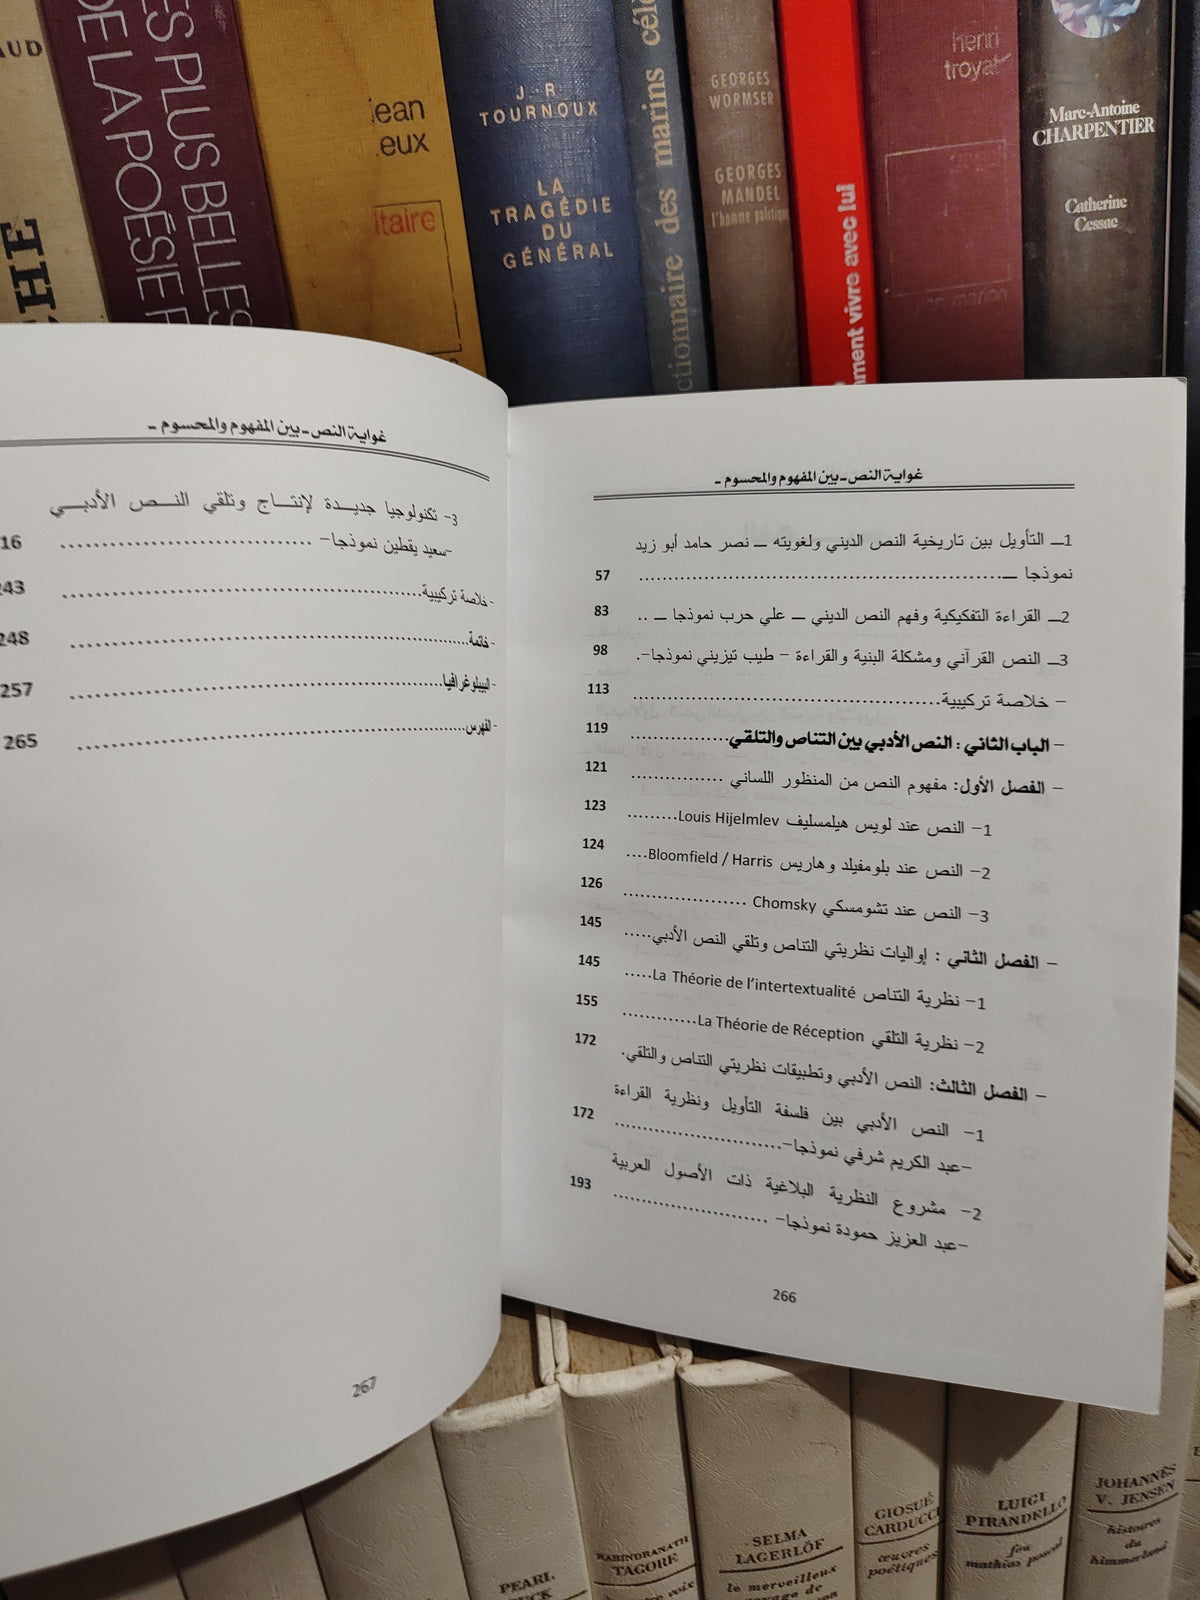 ES PLUS BELLES
DE LA POÉSIE
J.-R.
TOURNOUX
LA
TRAGÉDIE
DU
GÉNÉRAL
des marins
GEORGES
WORMSER
GEORGES
MANDEL
l'homme politique
vivre avec lui
henri
troyat
Marc-Antoine
CHARPENTIER
Catherine
Cessac
غواية النص ـ بين المفهوم والمحسوم ـ
1ـ التأويل بين تاريخية النص الديني ولغويته ـ نصر حامد أبو زيد
نموذجا ـ.................................................... 57
2ـ القراءة التفكيكية وفهم النص الديني ـ علي حرب نموذجا ـ .. 83
3ـ النص القرآني ومشكلة البنية والقراءة – طيب تيزيني نموذجا-. 98
- خلاصة تركيبية........................................ 113
- الباب الثاني : النص الأدبي بين التناص والتلقي................. 119
- الفصل الأول: مفهوم النص من المنظور اللساني ................ 121
1- النص عند لويس هيلمسليف Louis Hijelmlev......... 123
2- النص عند بلومفيلد وهاريس Bloomfield / Harris.... 124
3- النص عند تشومسكي Chomsky ..................... 126
- الفصل الثاني : إواليات نظريتي التناص وتلقي النص الأدبي..... 145
1- نظرية التناص La Théorie de l'intertextualité..... 145
2- نظرية التلقي La Théorie de Réception............. 155
- الفصل الثالث: النص الأدبي وتطبيقات نظريتي التناص والتلقي. 172
1- النص الأدبي بين فلسفة التأويل ونظرية القراءة
-عبد الكريم شرفي نموذجا-............................. 172
2- مشروع النظرية البلاغية ذات الأصول العربية
-عبد العزيز حمودة نموذجا- ........................... 193
266
غواية النص ـ بين المفهوم والمحسوم ـ
3- تكنولوجيا جديدة لإنتاج وتلقي النص الأدبي
-سعيد يقطين نموذجا- ................................ 16
- خلاصة تركيبية.............................................. 243
- خاتمة........................................................ 248
- البيبلوغرافيا................................................ 257
- الفهرس....................................................... 265
267
PEARL
RABINDRANATH
TAGORE
SELMA
LAGERLÖF
le merveilleux
GIOSUÉ
CARDUCCI
œuvres
poétiques
LUIGI
PIRANDELLO
feu
mathias pascal
JOHANNÈS
V. JENSEN
histoires
du
himmerland